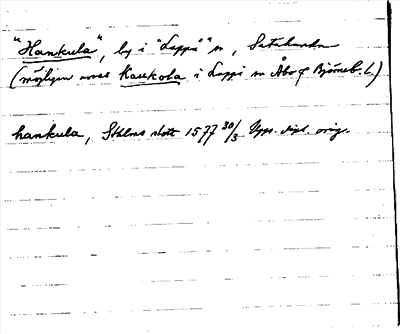 "Hankula", by i "Lappi" sn, Satakunda
(möjligen avses Kaukola i Lappi sn Åbo o Björneb. l.)
hankula, Sthlms slott 1577 30/3 Upps. dipl. orig.